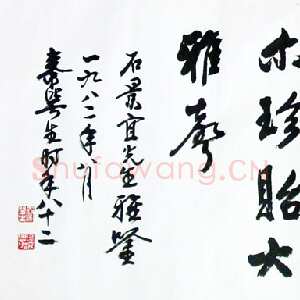 珍貽大
雅聲
石景宜先生雅鑒
一九八二年八月
秦咢生时年八十二
Shufawang.CN